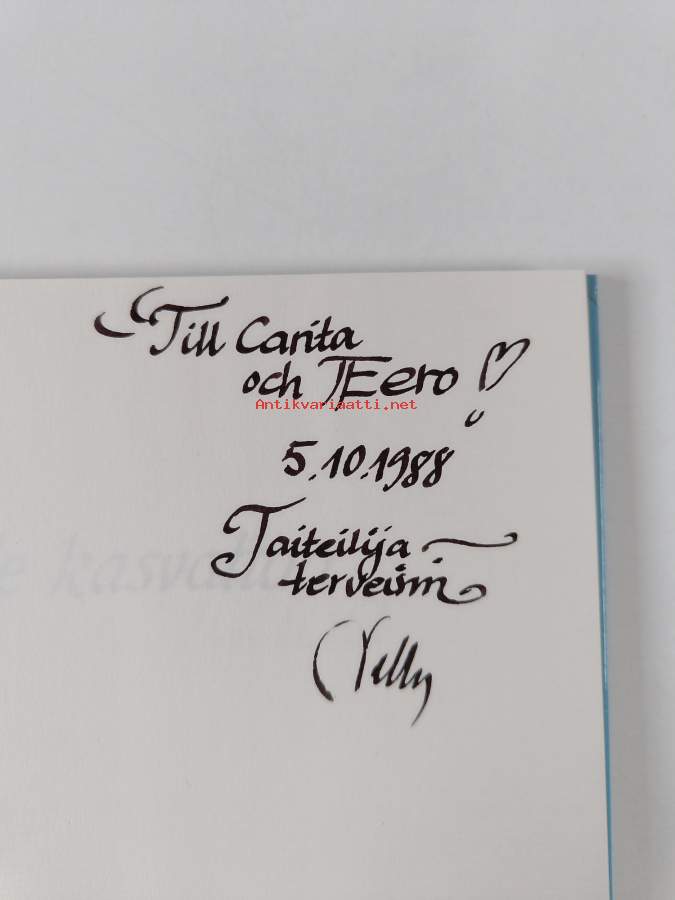 Till Carita
och Eero
Antikvariaatti.net
5.10.1988
Taiteilija-
terveisin